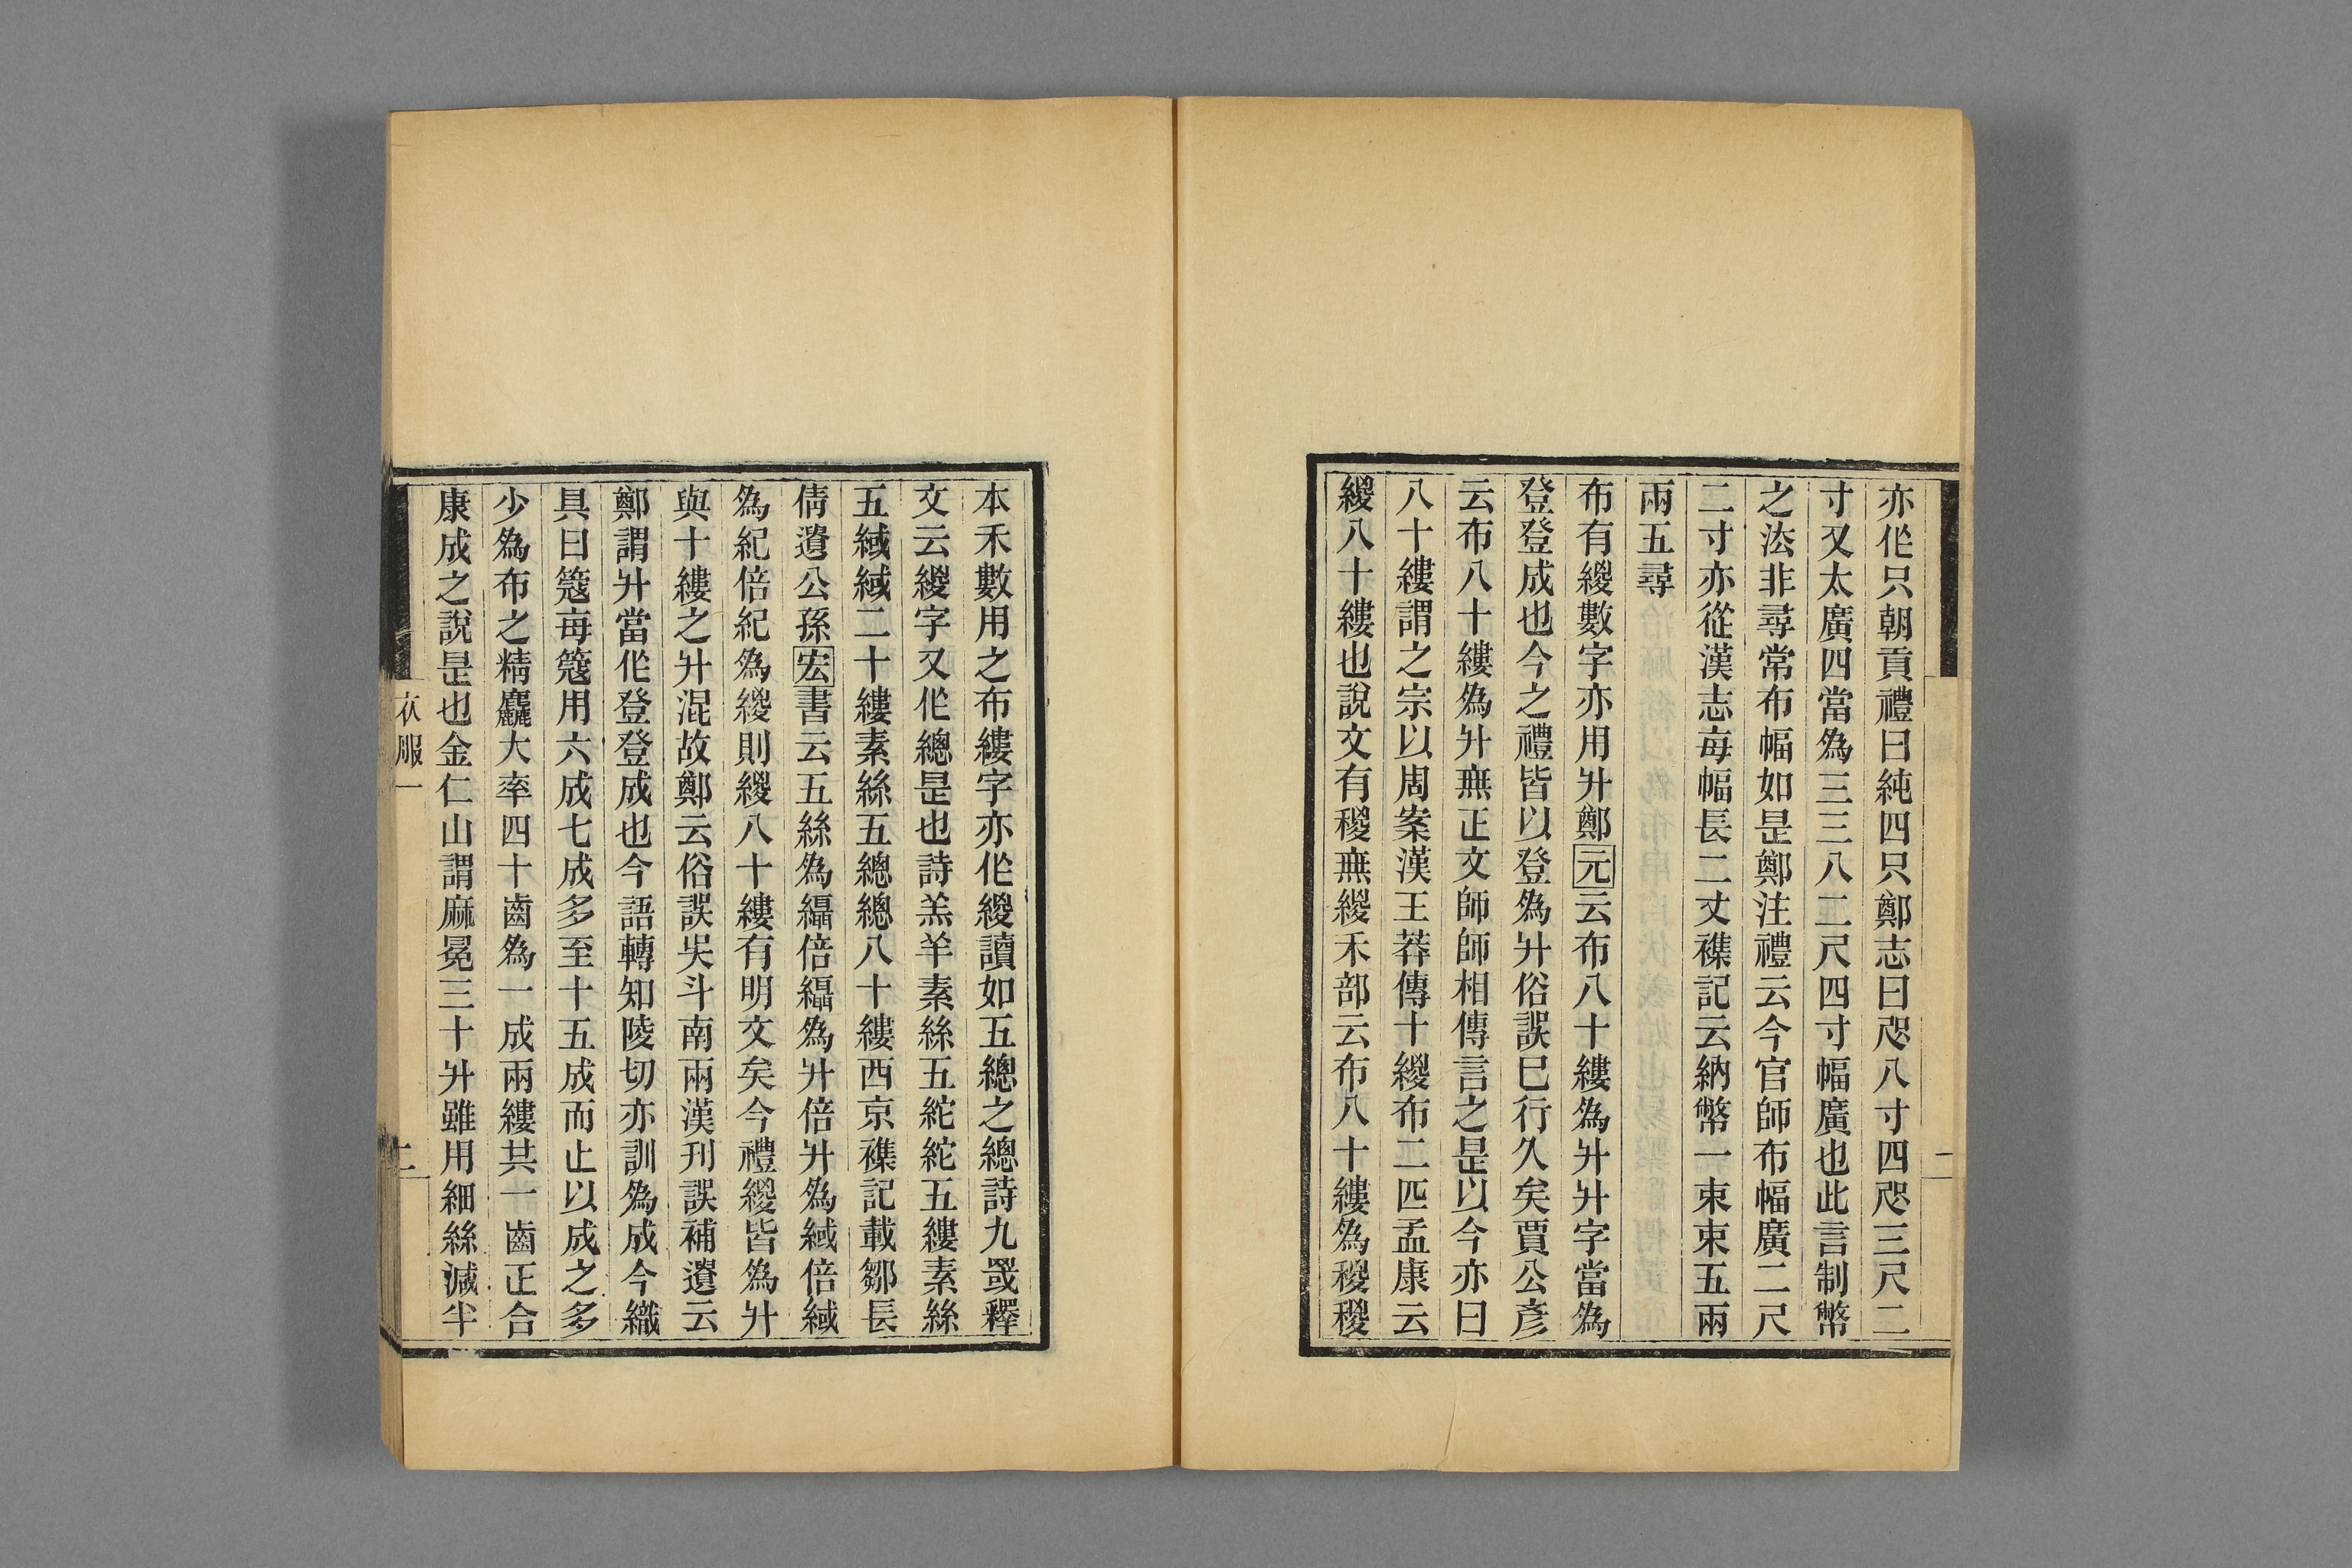 亦作只朝貢禮曰純四只鄭志曰咫八寸四咫三尺二
寸又太廣四當為三三八二尺四寸幅廣也此言制幣
之法非尋常布幅如是鄭注禮云今官師布幅廣二尺
二寸亦從漢志每幅長二丈襍記云納幣一束束五兩
兩五尋
布有緵數字亦用升鄭元云布八十縷為升升字當為
登登成也今之禮皆以登為升俗誤已行久矣賈公彥
云布八十縷為升無正文師師相傳言之是以今亦曰
八十縷謂之宗以周案漢王莽傳十緵布二匹孟康云
緵八十縷也說文有稯無緵禾部云布八十縷為稯稯
二
本禾數用之布縷字亦作緵讀如五總之總詩九罭釋
文云緵字又作總是也詩羔羊素絲五紽紽五縷素絲
五緎緎二十縷素絲五總總八十縷西京襍記載鄒長
倩遺公孫宏書云五絲為繓倍繓為升倍升為緎倍緎
為紀倍紀為緵則緵八十縷有明文矣今禮緵皆為升
與十縷之升混故鄭云俗誤吳斗南兩漢刊誤補遺云
鄭謂升當作登登成也今語轉知陵切亦訓為成今織
具曰簆每簆用六成七成多至十五成而止以成之多
少為布之精麤大率四十齒為一成兩縷共一齒正合
康成之說是也金仁山謂麻冕三十升雖用細絲減半
衣服一
二